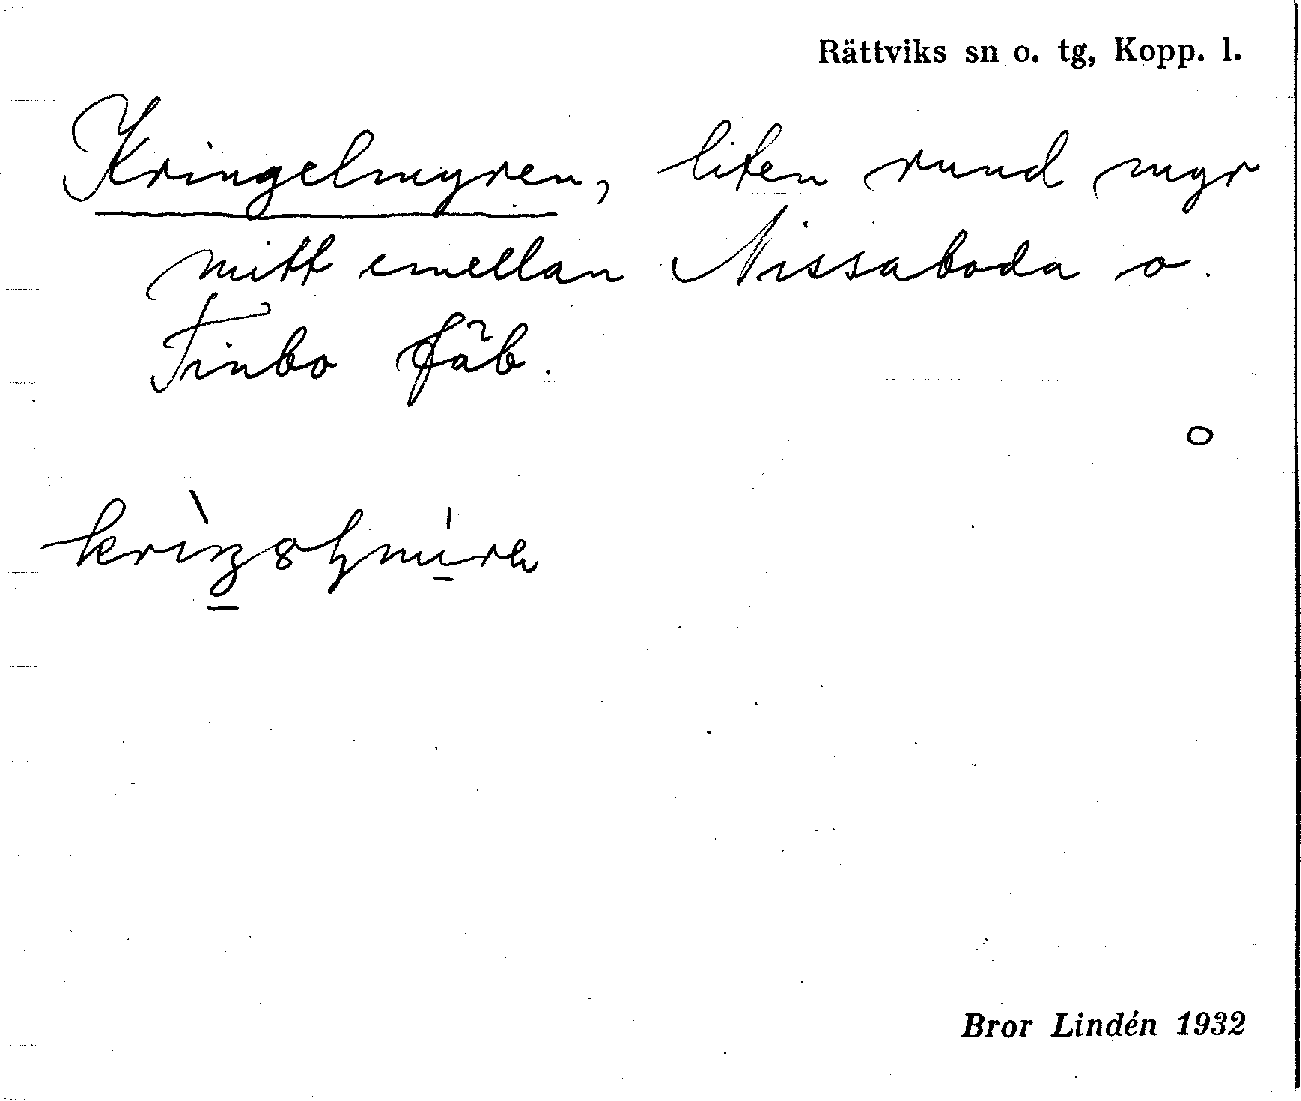 Rättviks sn o. tg, Kopp. l.
Kringelmyren, liten rund myr
mitt emellan Nissaboda o.
Finbo fäb.
Bror Lindén 1932